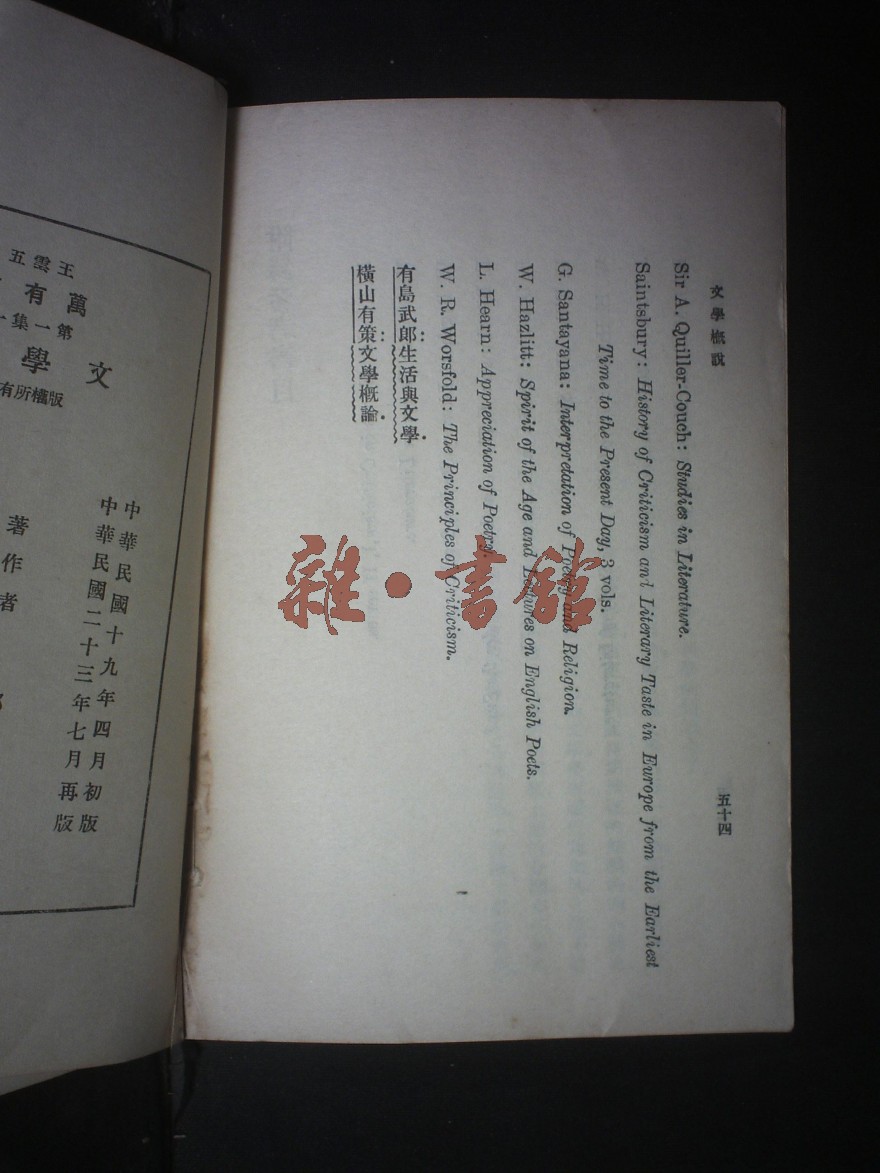 文學概說
五十四
Sir A. Quiller-Couch: Studies in Literature.
Saintsbury: History of Criticism and Literary Taste in Europe from the Earliest
Time to the Present Day, 3 vols.
G. Santayana: Interpretation of Poetry and Religion.
W. Hazlitt: Spirit of the Age and Lectures on English Poets.
L. Hearn: Appreciation of Poetry.
W. R. Worsfold: The Principles of Criticism.
有島武郎生活與文學
橫山有策文學概論
雜·書館
王雲五
萬有
第一集一
文學
版權所有
中華民國十九年四月初版
中華民國二十三年七月再版
著作者